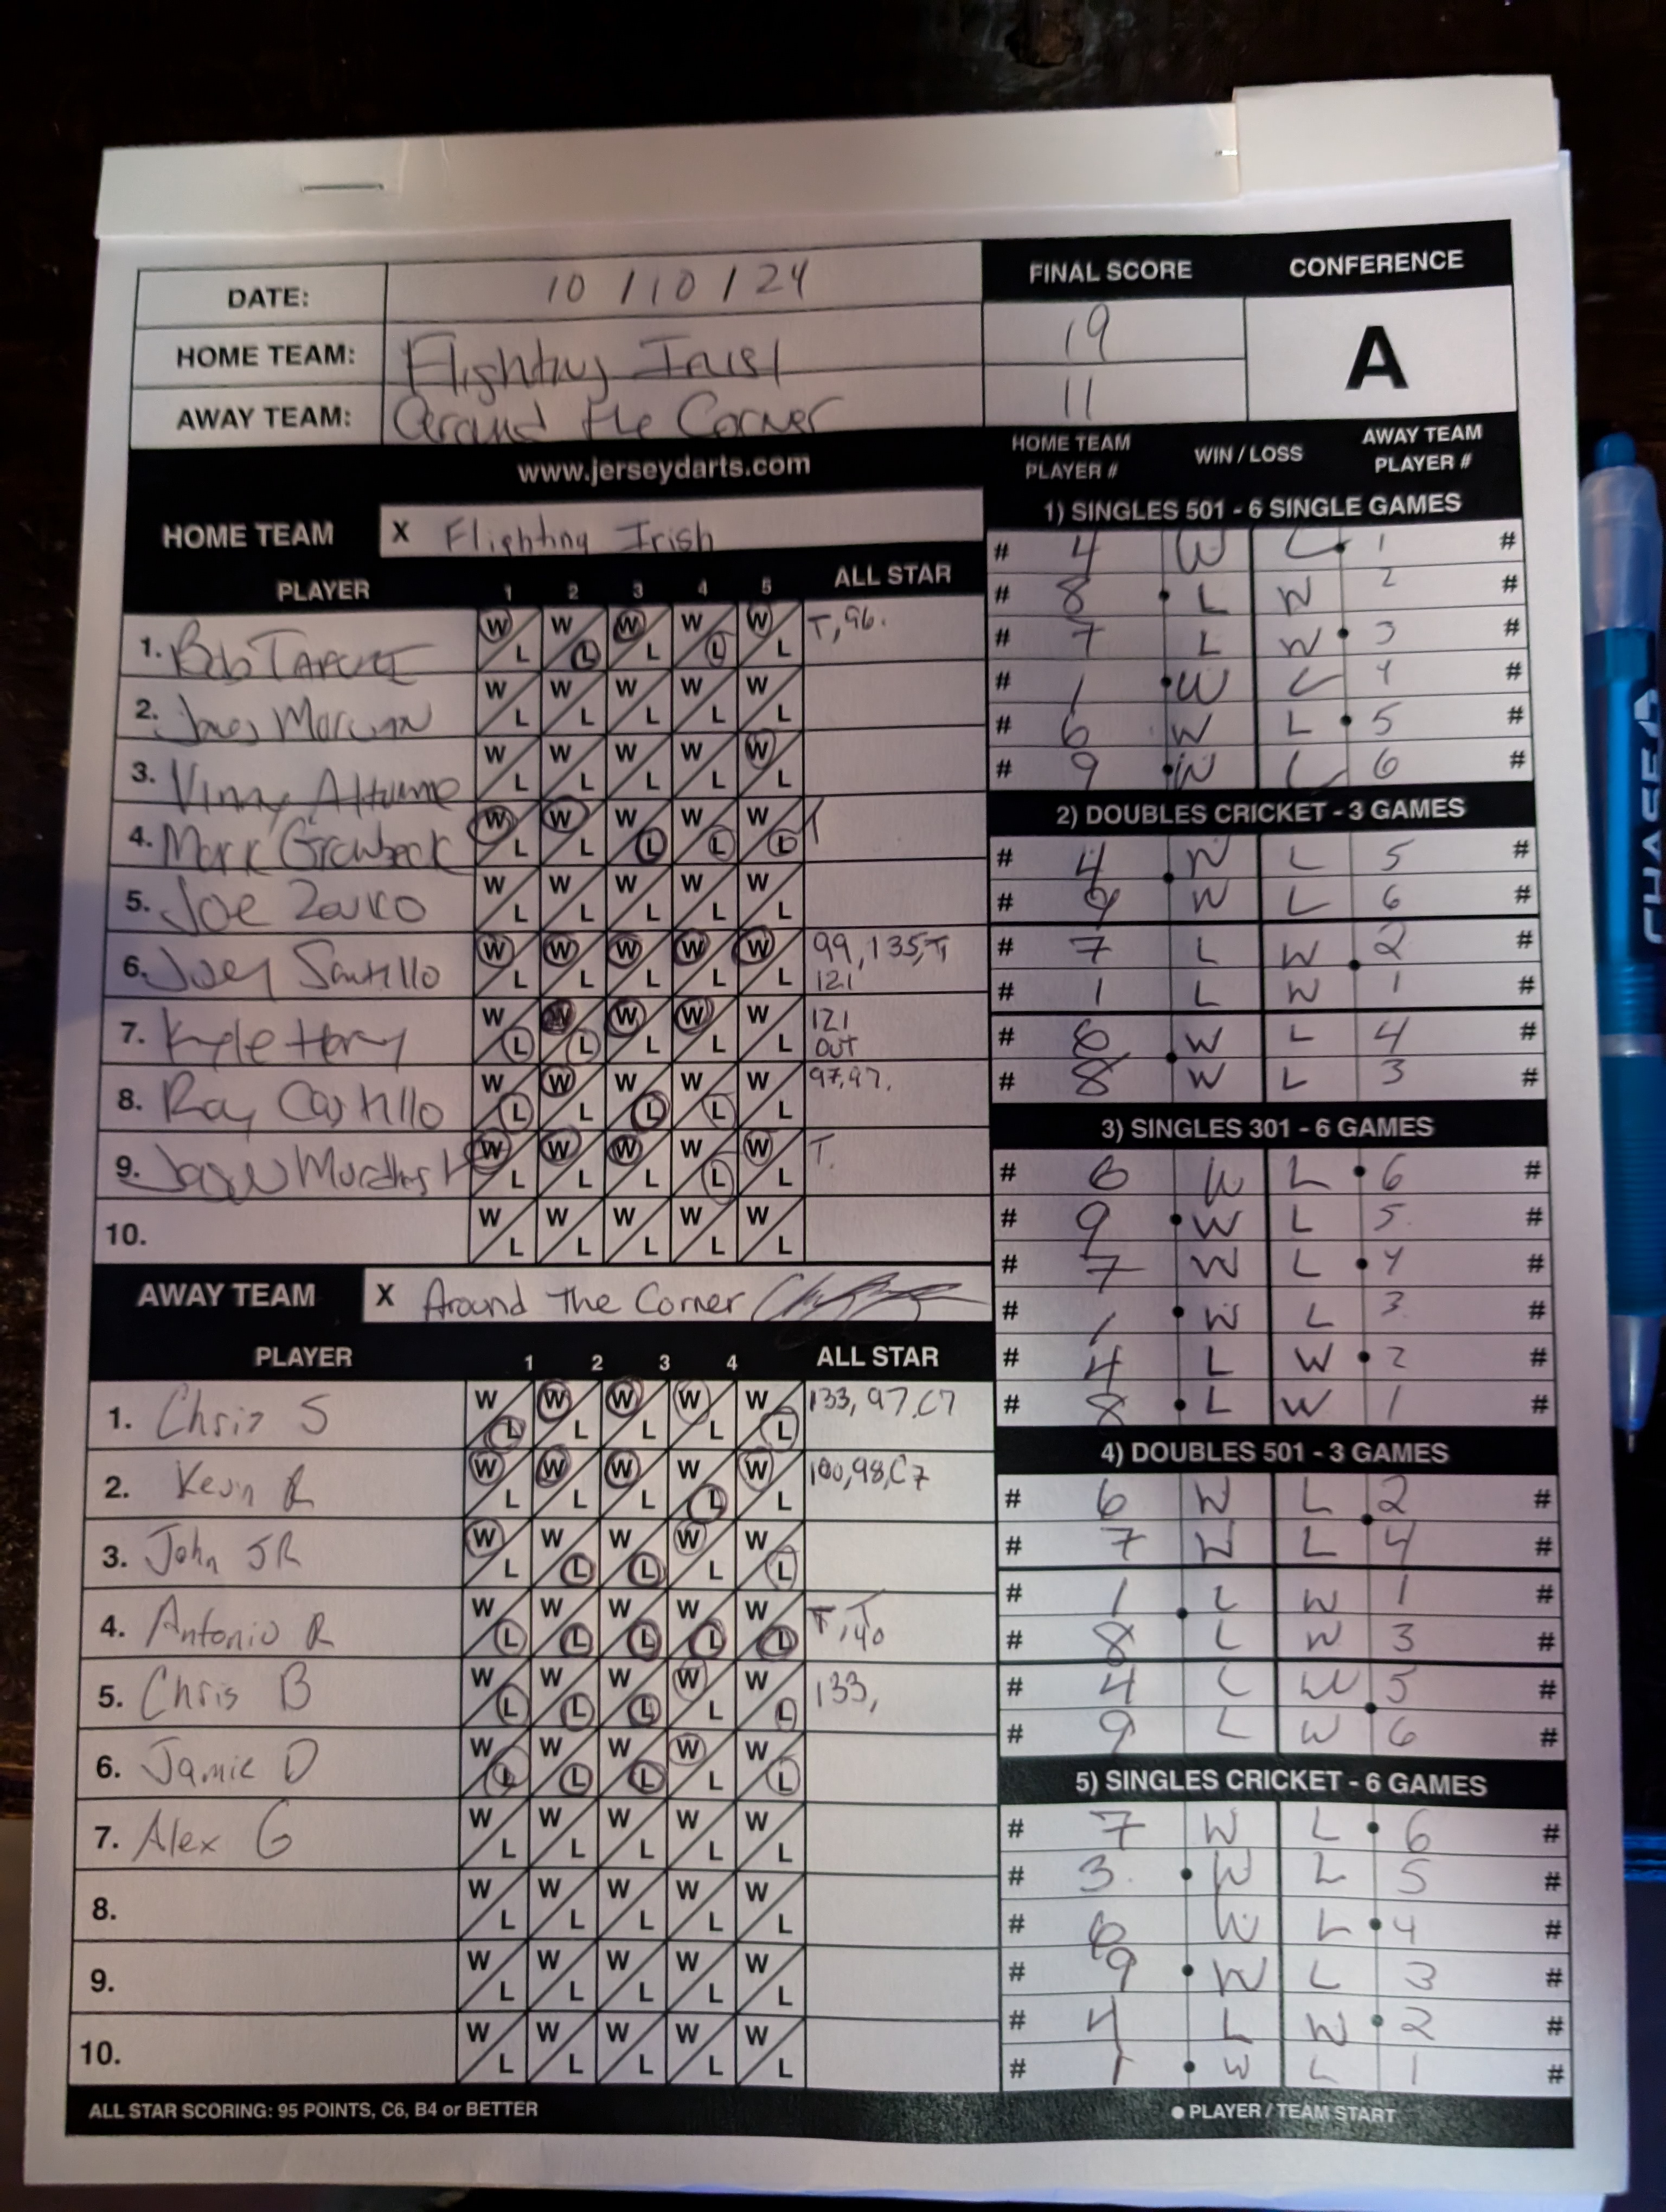 DATE: 10/10/24
FINAL SCORE CONFERENCE
HOME TEAM: Flighting Irish 19
A
AWAY TEAM: Around the Corner 11
www.jerseydarts.com
HOME TEAM PLAYER # WIN / LOSS AWAY TEAM PLAYER #
HOME TEAM X Flighting Irish
PLAYER 1 2 3 4 5 ALL STAR
1. Bob W L W L W L W L W L T, 96.
2. W L W L W L W L W L
3. Vinny W L W L W L W L W L
4. Mark W L W L W L W L W L T
5. Joe W L W L W L W L W L
6. Joey Santillo W L W L W L W L W L 99, 135, T,
121
7. Kyle W L W L W L W L W L 121
OUT
8. Ray Castillo W L W L W L W L W L 97, 97.
9. W L W L W L W L W L T.
10. W L W L W L W L W L
AWAY TEAM X Around The Corner
PLAYER 1 2 3 4 ALL STAR
1. Chris S W L W L W L W L W L 133, 97, C7
2. Kevin R W L W L W L W L W L 100, 98, C7
3. John JR W L W L W L W L W L
4. Antonio R W L W L W L W L W L T, T
140
5. Chris B W L W L W L W L W L 133,
6. Jamie D W L W L W L W L W L
7. Alex G W L W L W L W L W L
8. W L W L W L W L W L
9. W L W L W L W L W L
10. W L W L W L W L W L
ALL STAR SCORING: 95 POINTS, C6, B4 or BETTER
1) SINGLES 501 - 6 SINGLE GAMES
# 4 W L 1 #
# 8 L W 2 #
# 7 L W 3 #
# 1 W L 4 #
# 6 W L 5 #
# 9 W L 6 #
2) DOUBLES CRICKET - 3 GAMES
# 4 W L 5 #
# 9 W L 6 #
# 7 L W 2 #
# 1 L W 1 #
# 6 W L 4 #
# 8 W L 3 #
3) SINGLES 301 - 6 GAMES
# 6 W L 6 #
# 9 W L 5 #
# 7 W L 4 #
# 1 W L 3 #
# 4 L W 2 #
# 8 L W 1 #
4) DOUBLES 501 - 3 GAMES
# 6 W L 2 #
# 7 W L 4 #
# 1 L W 1 #
# 8 L W 3 #
# 4 L W 5 #
# 9 L W 6 #
5) SINGLES CRICKET - 6 GAMES
# 7 W L 6 #
# 3 W L 5 #
# 6 W L 4 #
# 9 W L 3 #
# 4 L W 2 #
# 1 W L 1 #
● PLAYER / TEAM START
CHASE